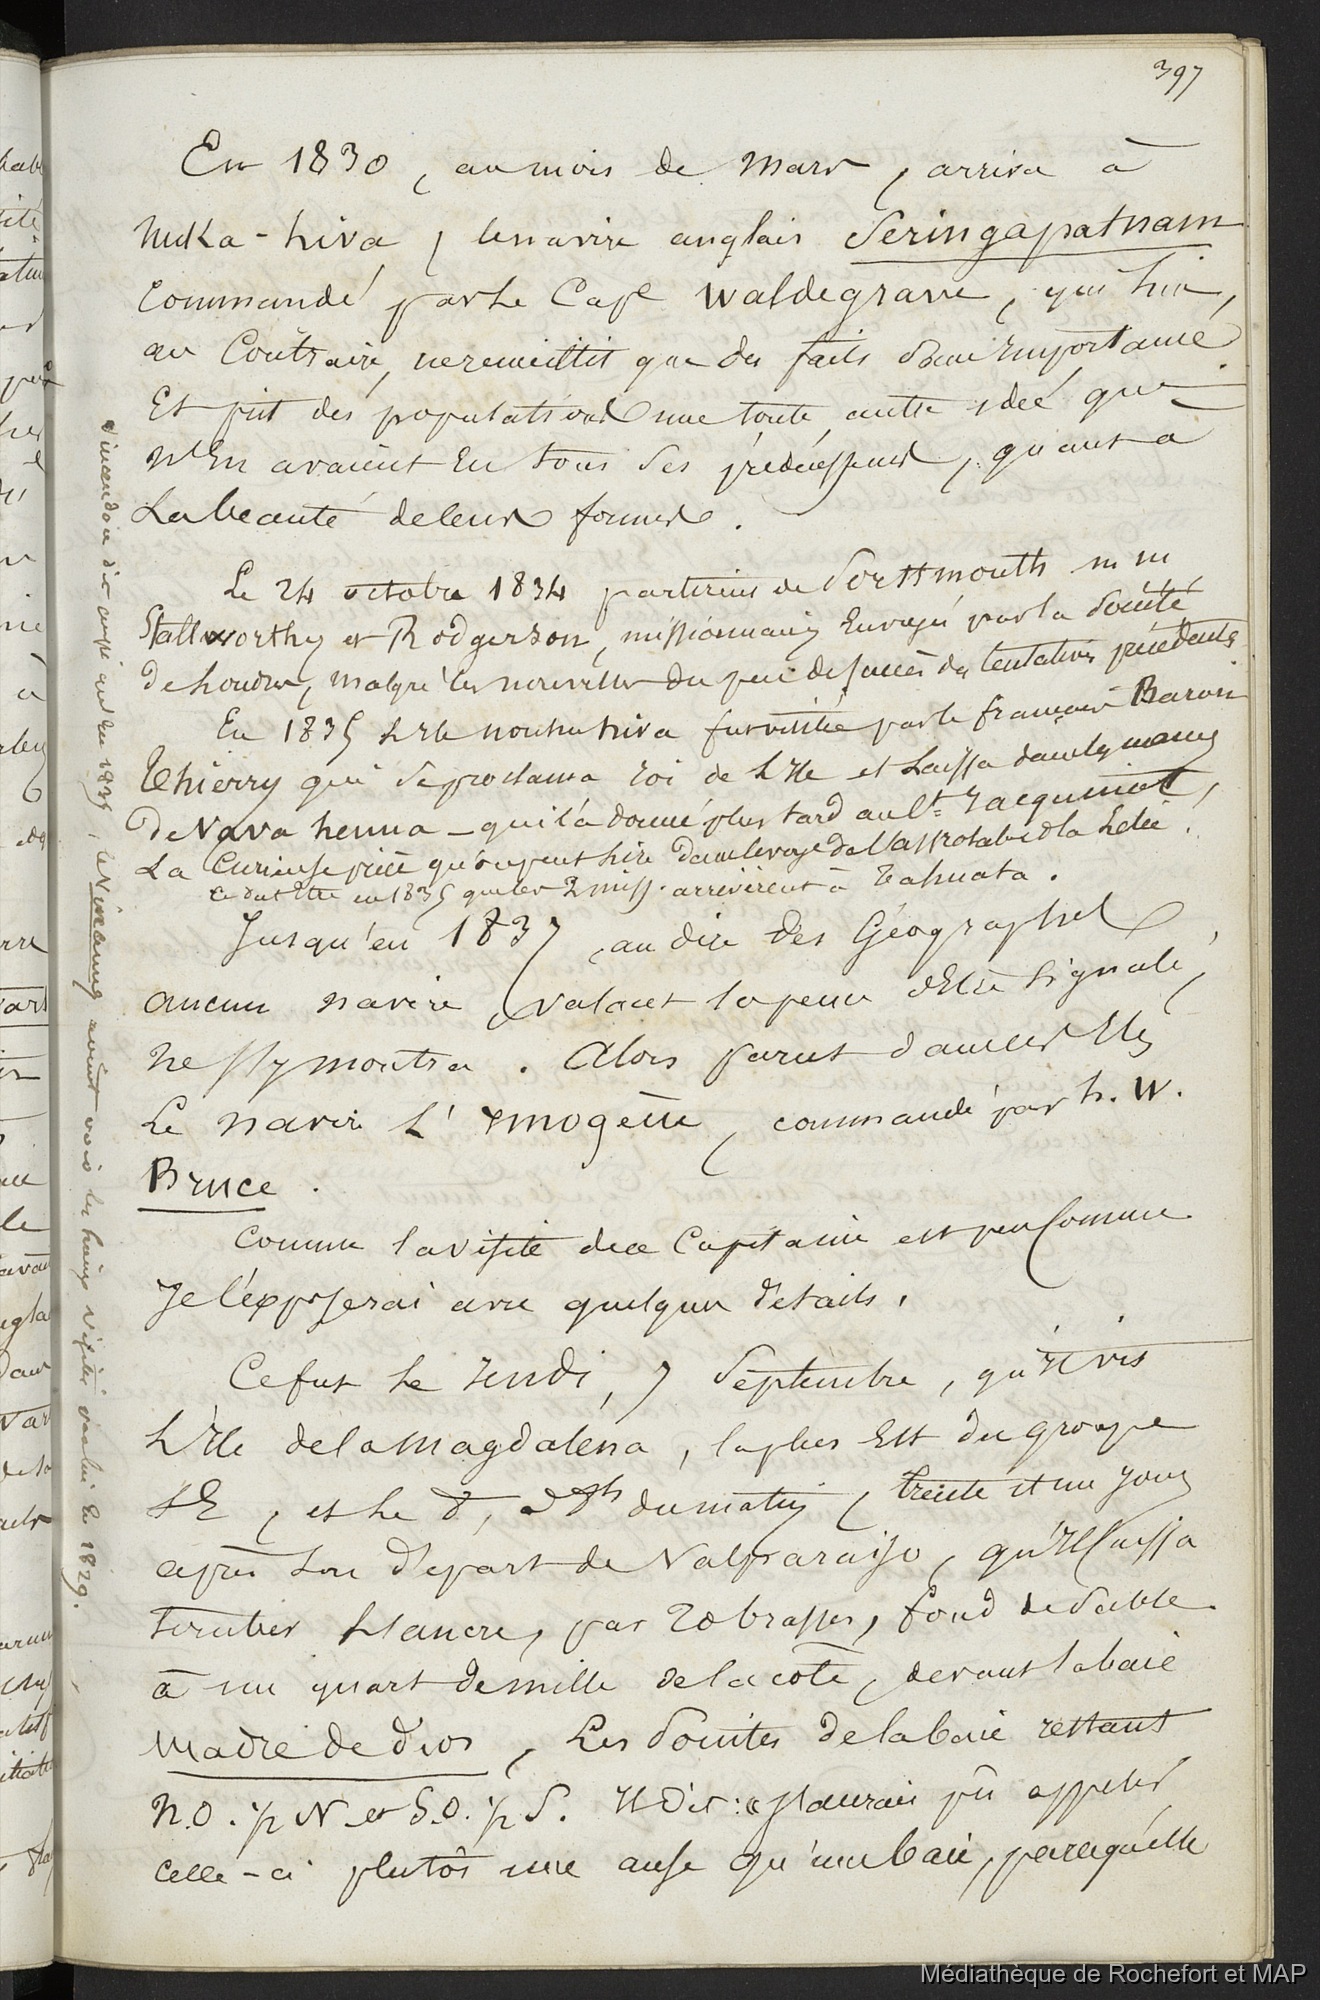 397
En 1830, au mois de Mars, arriva à
Nuka-hiva, le navire anglais Seringapatnam
commandé par le Cape Waldegrave, qui lui,
au Contraire, ne recueillit que des faits d'une importance
Et prit des populations une toute autre idée que
n'En avaient Eu tous ses prédécesseurs, quant a
La beauté de leurs formes.
Le 24 octobre 1834 partirent de Portsmouth m m
Stallworthy et Rodgerson, missionnaires Envoyés par la Société
de Londres, malgré les nouvelles du peu de succès des tentatives précédentes
En 1835 L'Ile nouhuhiva fut visitée par le français Baron
Thierry qui se proclama roi de L'Ile et Laissa dans les mains
de Vava henua - qui l'a donné plus tard au Lt. Jacquinot,
La Curieuse pièce qu'on peut lire dans le voyge de l'Astrolabe & la Zélée.
ce dut être en 1835 que les 2 miss. arrivèrent à Tahuata.
Jusqu'en 1837, au dire des Géographes,
aucun navire, valant la peine d'Etre signalé,
ne s'y montra. Alors parut dans ces Iles
Le navire L'imogène, commandé par h. W.
Bruce.
Comme la visite de ce Capitaine est peu Connue
Je l'exposerai avec quelques détails.
Ce fut le Jeudi, 7 Septembre, qu'Il vis
L'Ile de la Magdaléna, la plus Est du groupe
SE, et le 8, à 8h du matin, trente et un Jours
après son départ de Valparaiso, qu'Il laissa
tomber L'ancre, par 20 brasses, fond de Sable
à un quart de mille de la côte, devant la baie
Madre de dios, Les Pointes de la baie restant
N.O. 1/2 N et S.O. 1/2 S. Il dit: « J'aurais pû appeler
celle-ci plutôt une anse qu'une baie, parcequ'elle
Vincendon dit aussi qu'en 1835, le Vincennes avait vu les lieux visités par lui En 1829.